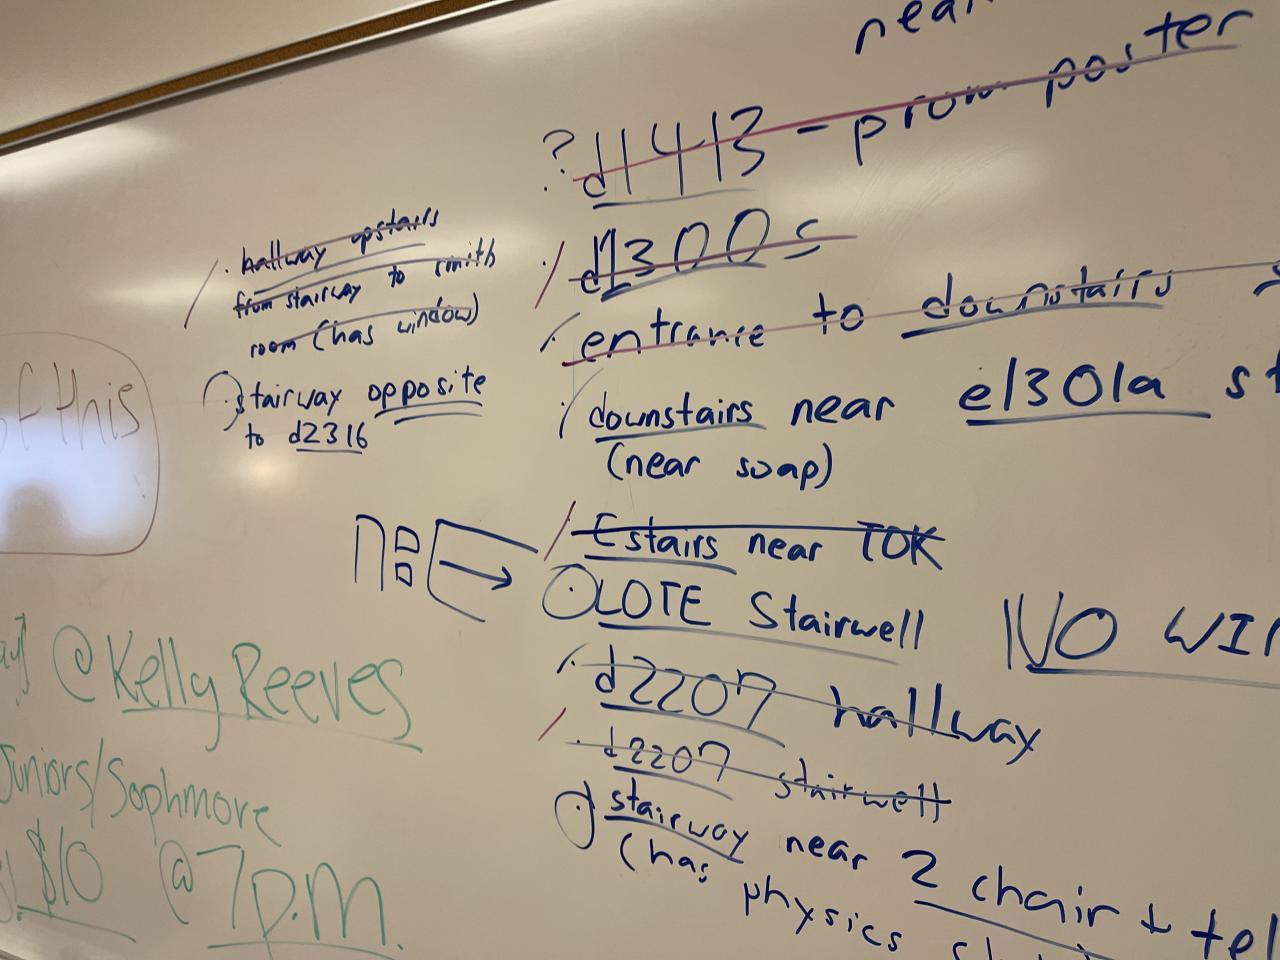 near
? d1413 - prom poster
d1300s
entrance to downstairs
downstairs near e1301a
(near soap)
Estairs near TOK
LOTE Stairwell
d2207 hallway
d2207 stairwell
stairway near 2 chair +
(has physics
NO
hallway upstairs
from stairway to smith
room (has window)
stairway opposite
to d2316
of this
@ Kelly Reeves
Juniors/Sophmore
$10 @ 7p.m.